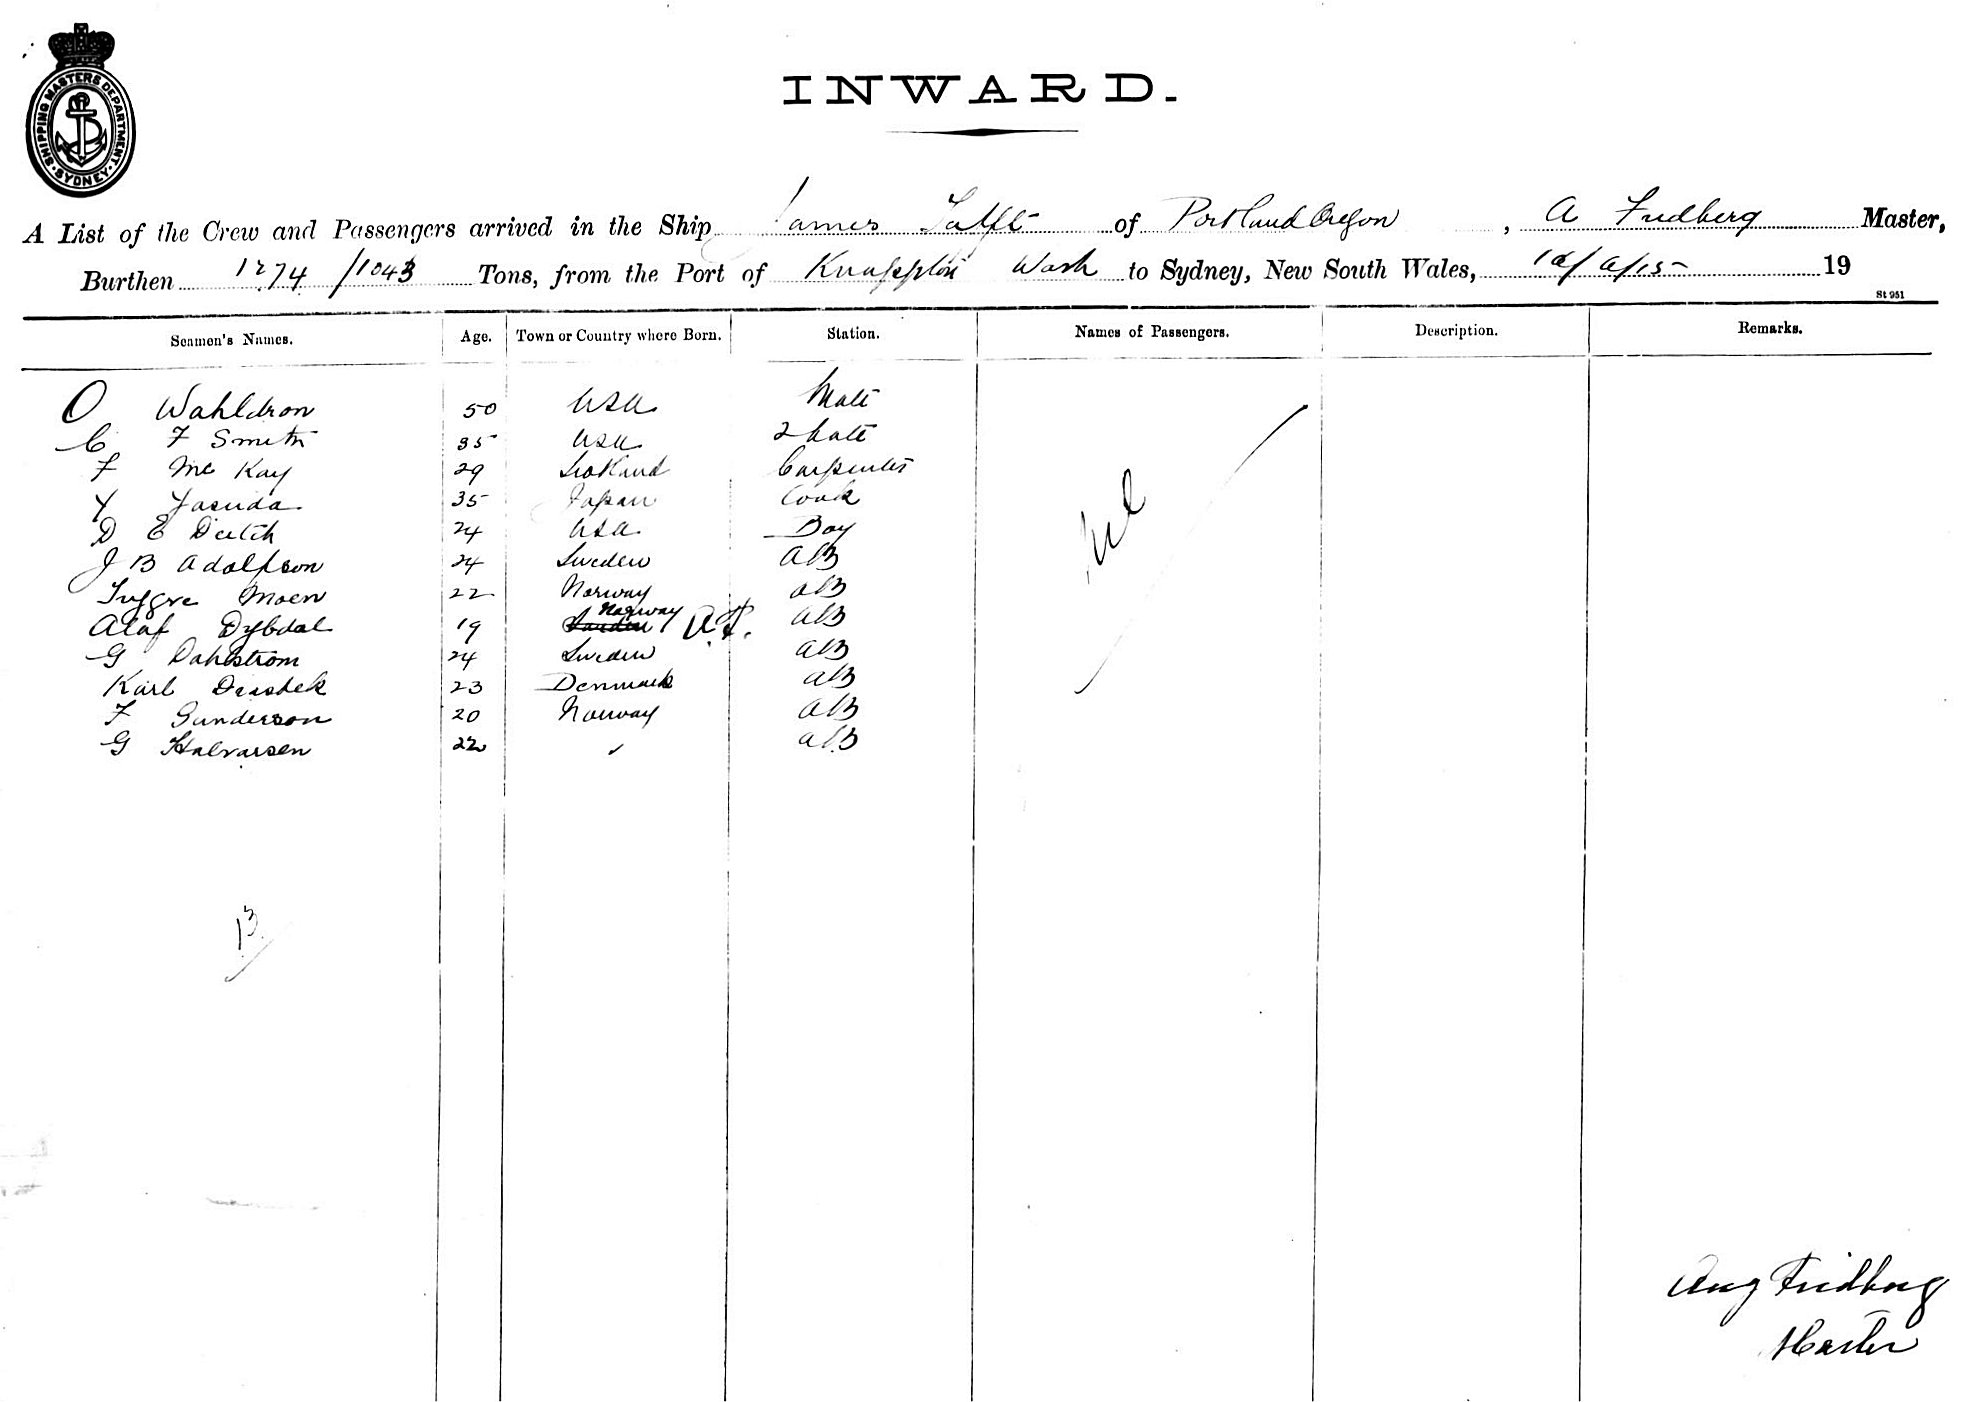 SHIPPING MASTERS DEPARTMENT
SYDNEY
INWARD.
A List of the Crew and Passengers arrived in the Ship James Tuft of Portland Oregon, A Fridberg Master,
Burthen 1274/1043 Tons, from the Port of Knappton Wash to Sydney, New South Wales, 19
St 951
Seamen's Names. Age. Town or Country where Born. Station. Names of Passengers. Description. Remarks.
O Wahldron 50 USA Mate
C F Smith 35 USA 2 Mate
F Mc Kay 29 Scotland Carpenter
Y Yasuda 35 Japan Cook
D E Deitch 24 USA Boy
J B Adolfson 24 Sweden AB
Moen 22 Norway AB
Norway
Alaf Dybdal 19 Sweden A.F. AB
G Dahlstrom 24 Sweden AB
Karl 23 Denmark AB
F Gunderson 20 Norway AB
G Halvarsen 22 AB
Nil
13
Aug Fridberg
Master